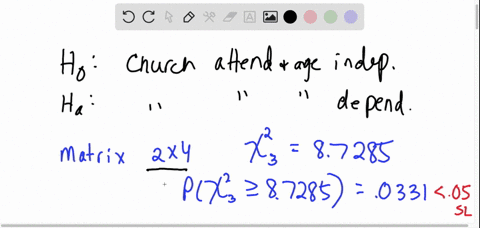 H₀: Church attend + age indep.
Hₐ: " " " depend.
Matrix 2x4 χ²₃ = 8.7285
P(χ²₃ ≥ 8.7285) = .0331 < .05
SL